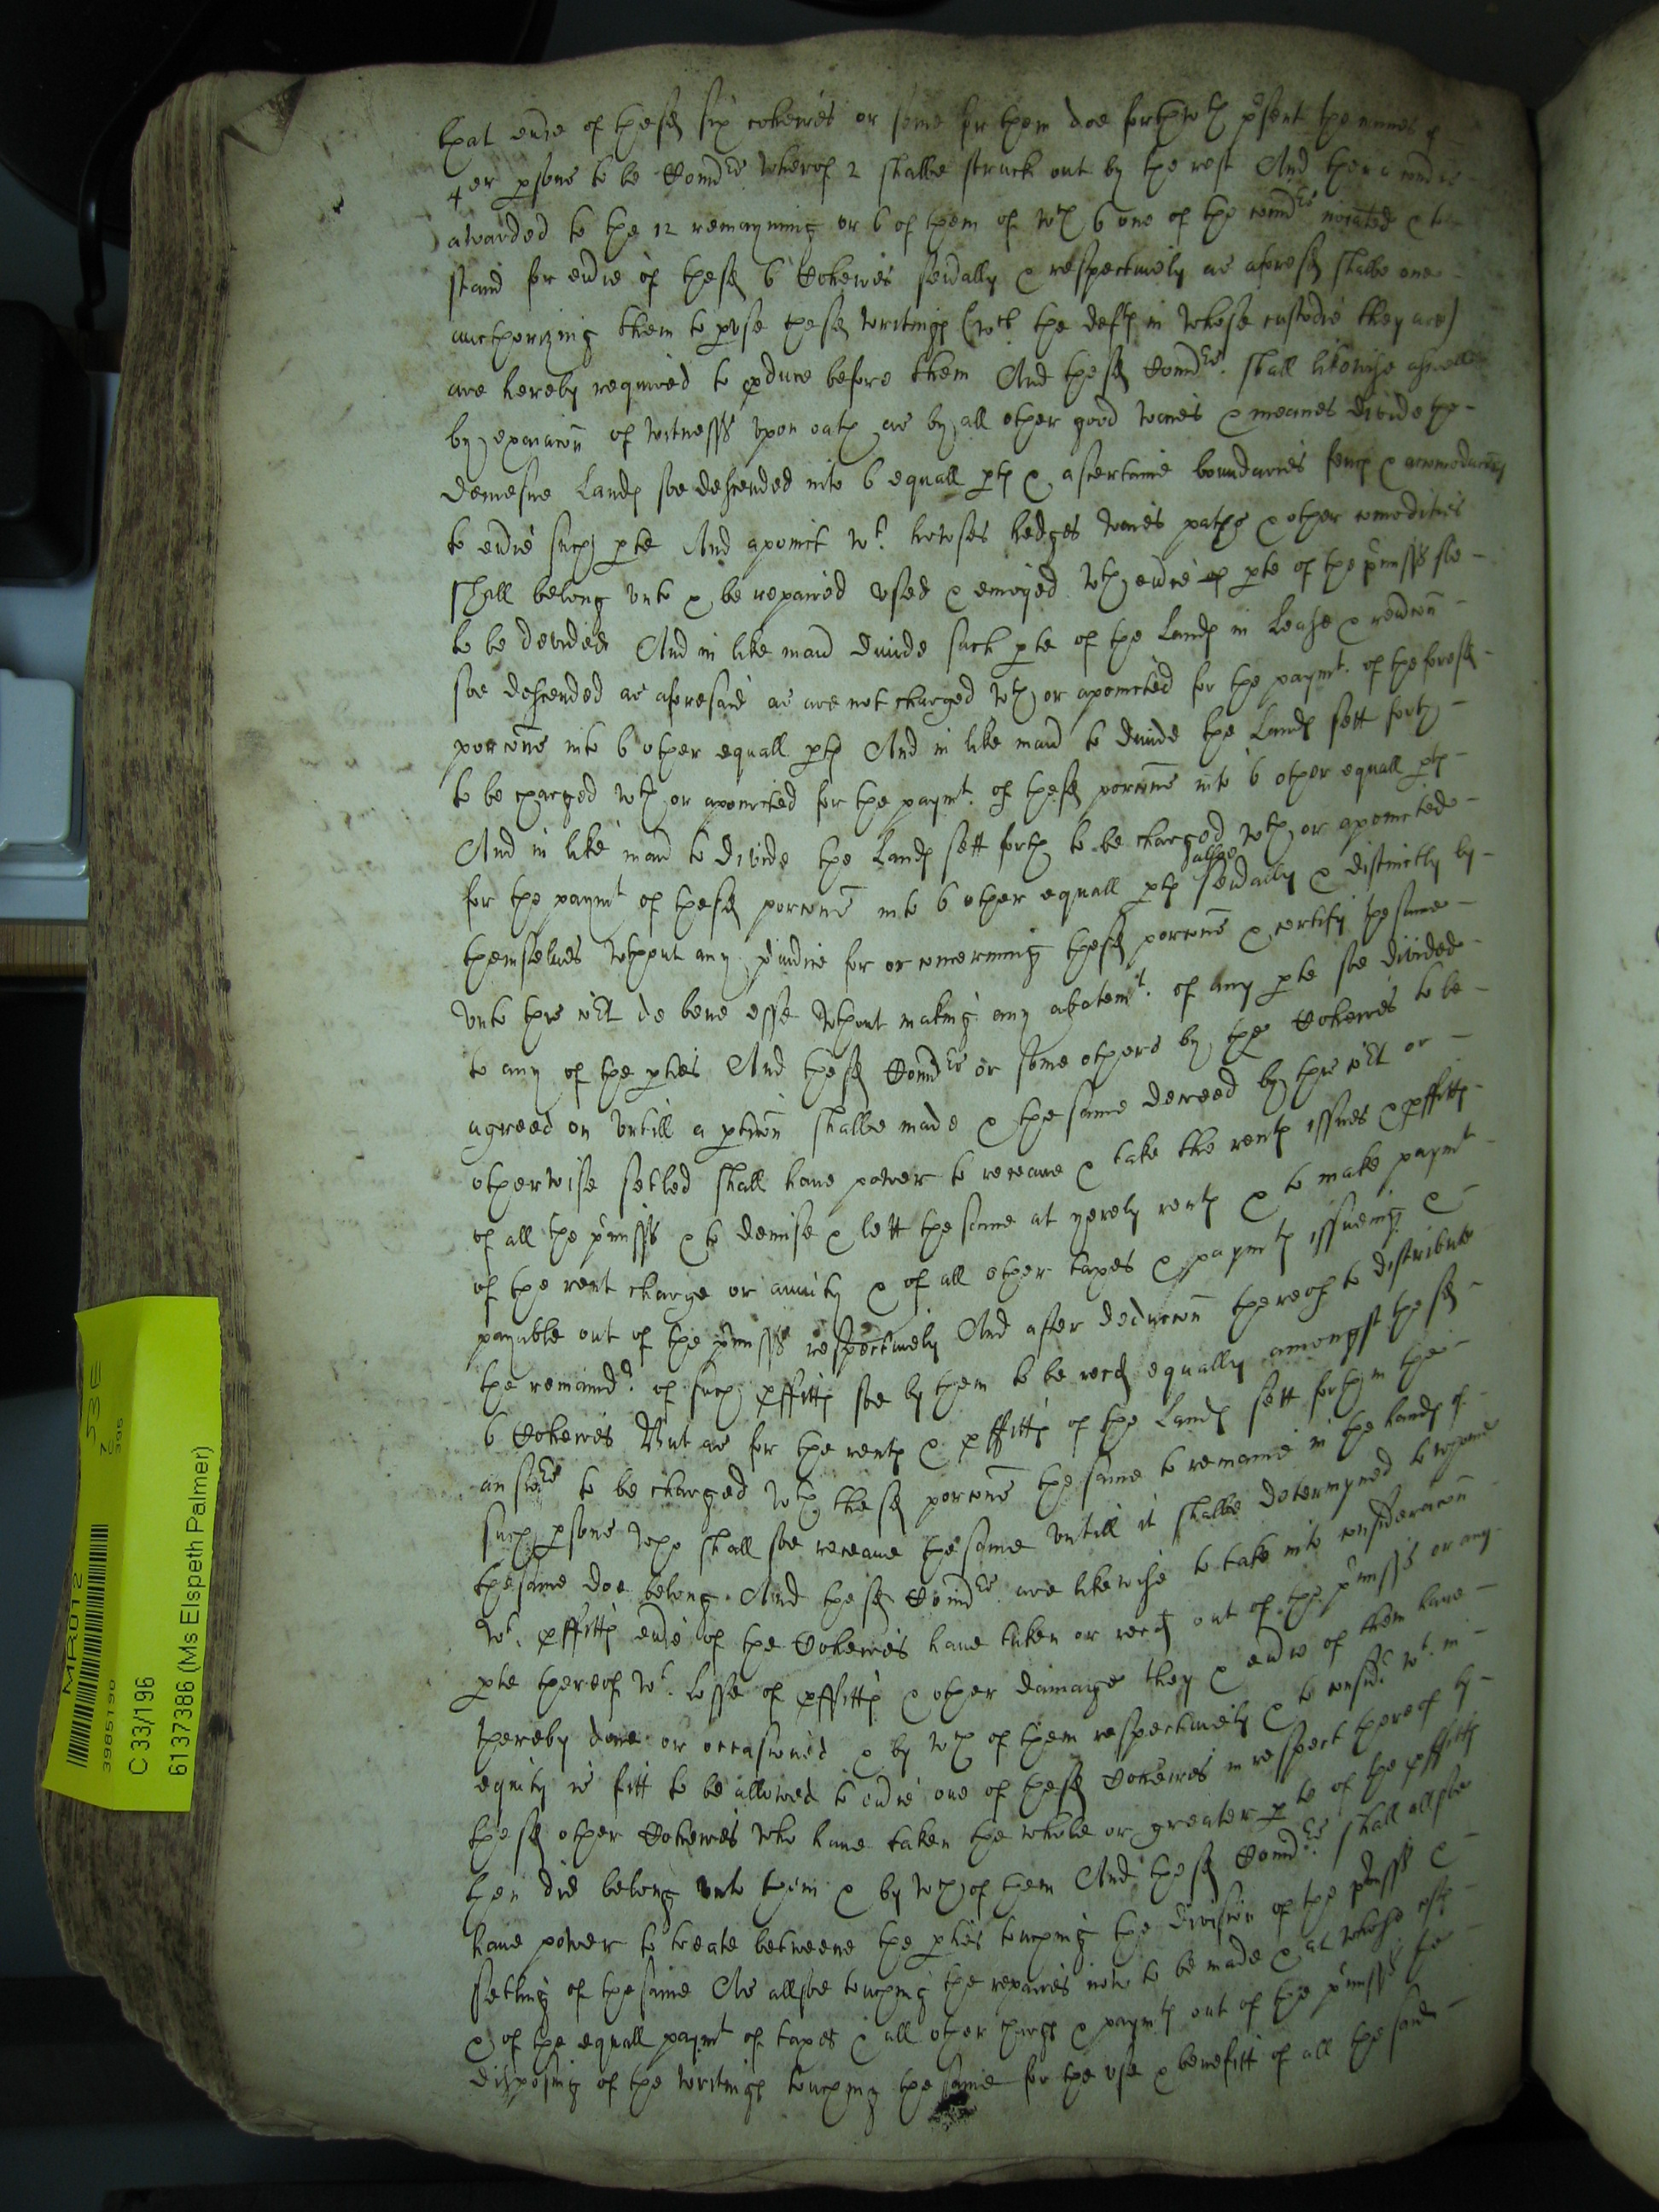 that eu'ie of the sd six coheires or some for them doe forthwth p'sent the names of
4er psons to be Com'rs wherof 2 shalbe struck out by the rest And then a
awarded to the 12 remayning or 6 of them of wch 6 one of the com'rs
stand for eu'ie of the sd 6 Coheires seu'ally & respectiuely as aforesd shalbe one
aucthorizing them to p'use the sd writings (wch the deftes in whose custodie they are)
are hereby required to p'duce before them And the sd Com'rs shall likewise aswell
by exa'i'acon of witnesses vpon oath as by all other good waies & meanes divide the
demesne Landes soe descended into 6 equall ptes & ascertaine boundaries fences & accomodacons
to eu'ie such pte And apoinct wt howses hedges waies pathes & other comodities
shall belong vnto & be repaired vsed & enioyed wth eu'ie pte of the p'misses soe
to be devided And in like mann' diuide such pte of the Landes in Lease & reu'con
soe descended as aforesaid as are not charged wth or apoincted for the paymt of the foresd
porcons into 6 other equall ptes And in like mann' to diuide the Landes sett forth
to be charged wth or apoincted for the paymt of the sd porcons into 6 other equall ptes
And in like mann' to divide the Landes sett forth to be charged wth or apoincted
allsoe
for the paymt of the sd porcons into 6 other equall ptes seu'ally & distinctly by
themselues wthout any p'iudice for or concerning the sd porcons & certify the same
vnto this co'rt de bene esse wthout making any abatemt of any pte soe divided
to any of the pties And the sd Com'rs or some others by the Coheires to be
agreed on vntill a p'ticon shalbe made & the same decreed by this co'rt or
otherwise setled shall haue power to receaue & take the rentes issues & proffittes
of all the p'misses & to demise & lett the same at yerely rentes & to make paymt
of the rent charge or anuity & of all other taxes & paymtes issueing &
payable out of the p'misses respectiuely And after deduccon thereof to distribute
the remaind'r of such proffittes soe by them to be recd equally amongst the sd
6 Coheires But as for the rentes & proffittes of the Landes sett forth in the
answ'rs to be charged wth the sd porcons the same to remaine in the handes of
such psons who shall soe receaue the same vntill it shalbe determyned to whome
the same doe belong And the sd Com'rs are likewise to take into consideracon
wt proffittes eu'ie of the Coheires haue taken or recd out of the p'misses or any
pte thereof wt losse of proffittes & other damaige they & eu'ie of them haue
thereby done or occasioned & by wch of them respectiuely & to consid'r wt in
equity is fitt to be allowed to eu'ie one of the sd Coheires in respect thereof by
the sd other Coheires who haue taken the whole or greater pte of the proffittes
then did belong vnto them & by wch of them And the sd Com'rs shall allsoe
haue power to treate betweene the pties touching the division of the p'misses &
setling of the same As allsoe touching the repaires now to be made & at whose
& of the equall paymt of taxes & all other charges & paymtes out of the p'misses
disposing of the writinges touching the same for the vse & benefitt of all the said
MR012
3985190
C 33/196
6137386 (Ms Elspeth Palmer)
53E
7
395